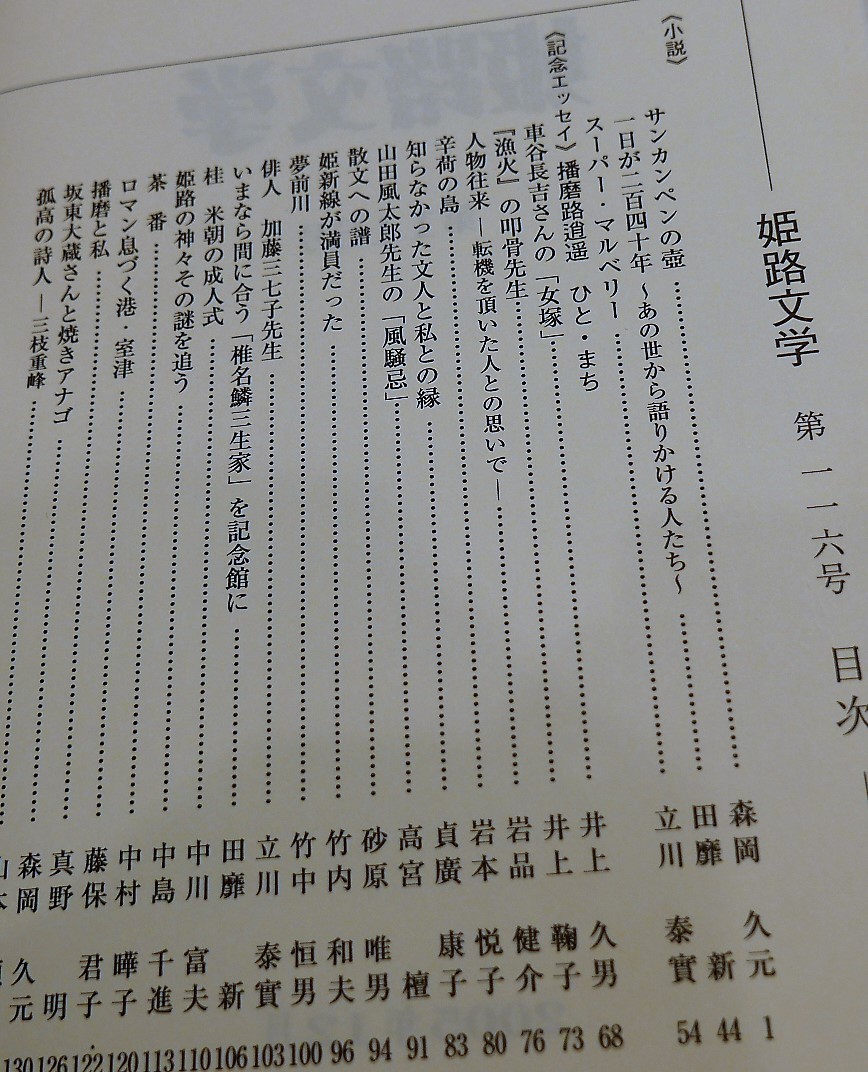 姫路文学 第一一六号 目次
〈小説〉
サンカンペンの壺 森岡 久元 1
一日が二百四十年 〜あの世から語りかける人たち〜 田靡 新 44
スーパー・マルベリー 立川 泰實 54
〈記念エッセイ〉 播磨路逍遥 ひと・まち
車谷長吉さんの「女塚」 井上 久男 68
『漁火』の叩骨先生 井上 鞠子 73
人物往来 ―転機を頂いた人との思いで― 岩品 健介 76
辛荷の島 岩本 悦子 80
知らなかった文人と私との縁 貞廣 康子 83
山田風太郎先生の「風騒忌」 高宮 檀 91
散文への譜 砂原 唯男 94
姫新線が満員だった 竹内 和夫 96
夢前川 竹中 恒男 100
俳人 加藤三七子先生 立川 泰實 103
いまなら間に合う「椎名鱗三生家」を記念館に 田靡 新 106
桂 米朝の成人式 中川 富夫 110
姫路の神々その謎を追う 中島 千進 113
茶番 中村 曄子 120
ロマン息づく港・室津 藤保 君子 122
播磨と私 真野 明 126
坂東大蔵さんと焼きアナゴ 森岡 久元 130
孤高の詩人 ―三枝重峰